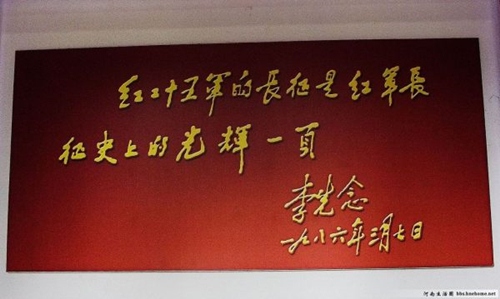 红二十五军的長征是红军長
征史上的光辉一頁
李先念
一九八六年三月七日
河南生活圈 bbs.haehome.net